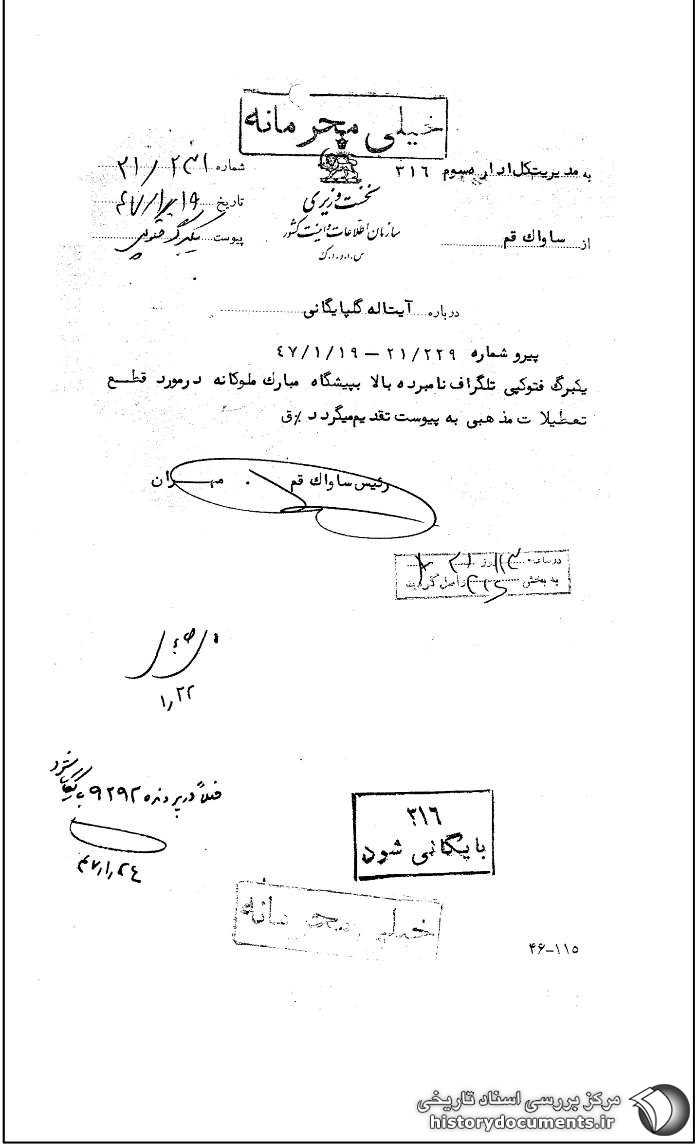 خیلی محرمانه
به مدیریت کل اداره سوم ۳۱۶
نخست وزیری
سازمان اطلاعات و امنیت کشور
س.ا.و.ا.ک
شماره ۲۱/
تاریخ ۴۷/۱/۱۹
از ساواك قم
پیوست یکبرگ فتوکپی
درباره آیتاله گلپایگانی
پیرو شماره ۲۱/۲۲۹ – ۴۷/۱/۱۹
یکبرگ فتوکپی تلگراف نامبرده بالا بپیشگاه مبارك ملوکانه در مورد قطع
تعطیلات مذهبی به پیوست تقدیم میگردد ق
رئیس ساواك قم . مهران
در ساعت روز
به بخش واصل گردید
۱/۲۲
فعلاً در پرونده ۹۲۹۲ بایگانی شود
۴۷/۱/۲۴
۳۱۶
بایگانی شود
خیلی محرمانه
۴۶-۱۱۵
مرکز بررسی اسناد تاریخی
historydocuments.ir